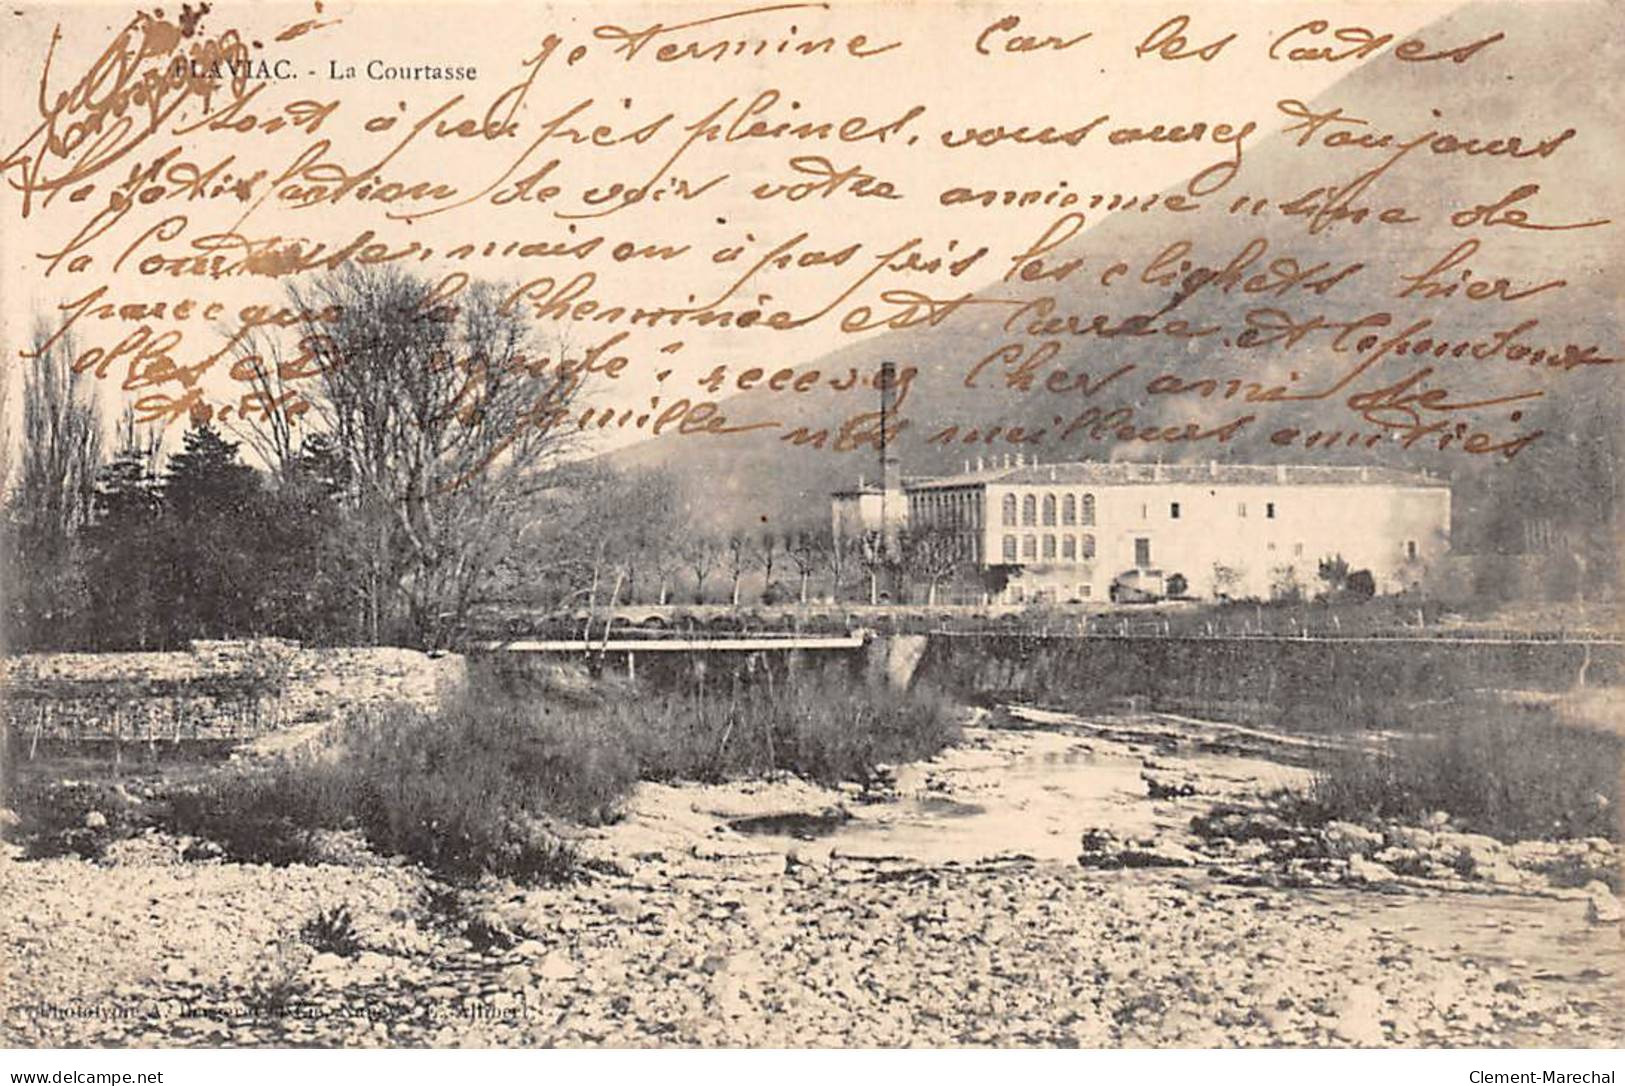 FLAVIAC. - La Courtasse
je termine car les cartes
sont à peu près pleines, vous aurez toujours
la satisfaction de voir votre ancienne usine de
la Courtasse, mais on a pas pris les clichets hier
parce que la Cheminée est Carrée et cependant
elle est ronde; recevez cher ami de
toute la famille nos meilleurs amitiés
Phototypie A. Bergeret et Cie, Nancy - Allibert
delcampe.net
Clement-Marechal